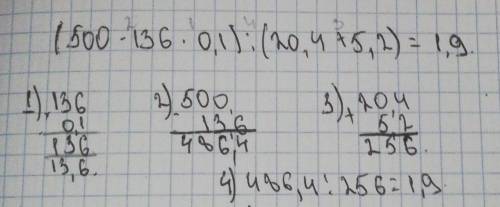 (500 - 136 · 0,1) : (20,4 + 5,2) = 1,9.
1) 136 2) 500 3) 204
0,1 - 13,6 + 5,2
136 486,4 256.
13,6.
4) 486,4 : 256 = 1,9.